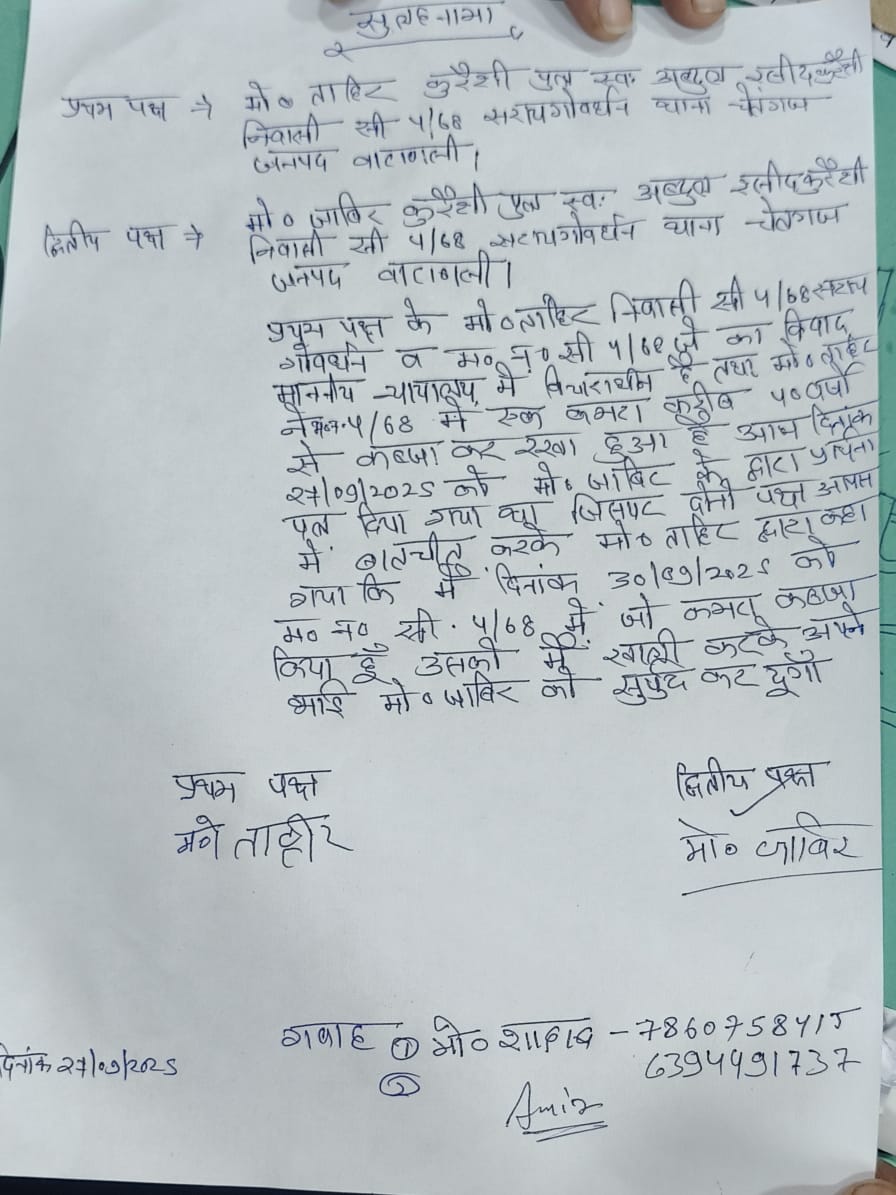 सुलहनामा
प्रथम पक्ष → मो० ताहिर कुरैशी पुत्र स्वः अब्दुल हलीद कुरैशी
निवासी सी 4/68 सरायगोवर्धन थाना चेतगंज
जनपद वाराणसी।
द्वितीय पक्ष → मो० जाबिर कुरैशी पुत्र स्वः अब्दुल हलीद कुरैशी
निवासी सी 4/68 सरायगोवर्धन थाना चेतगंज
जनपद वाराणसी।
प्रथम पक्ष के मो० ताहिर निवासी सी 4/68 सराय
गोवर्धन व म० न० सी 4/68 जे का विवाद
माननीय न्यायालय में विचाराधीन है तथा मो० ताहिर
ने 4/68 में एक कमरा करीब 50 वर्षो
से कब्जा कर रखा हुआ है आज दिनांक
27/09/2025 को मो० जाबिर के द्वारा प्रार्थना
पत्र दिया गया था जिसपर दोनो पक्ष आपस
में बातचीत करके मो० ताहिर द्वारा कहा
गया कि मैं दिनांक 30/09/2025 को
म० न० सी. 4/68 में जो कमरा कब्जा
किया हूँ उसको मैं खाली करके अपने
भाई मो० जाबिर को सुपुर्द कर दूंगा
प्रथम पक्ष
द्वितीय पक्ष
ताहीर
मो० जाबिर
गवाह ① मो० शाहिद - 7860758415
6394491737
दिनांक 27/09/2025
②
Amir